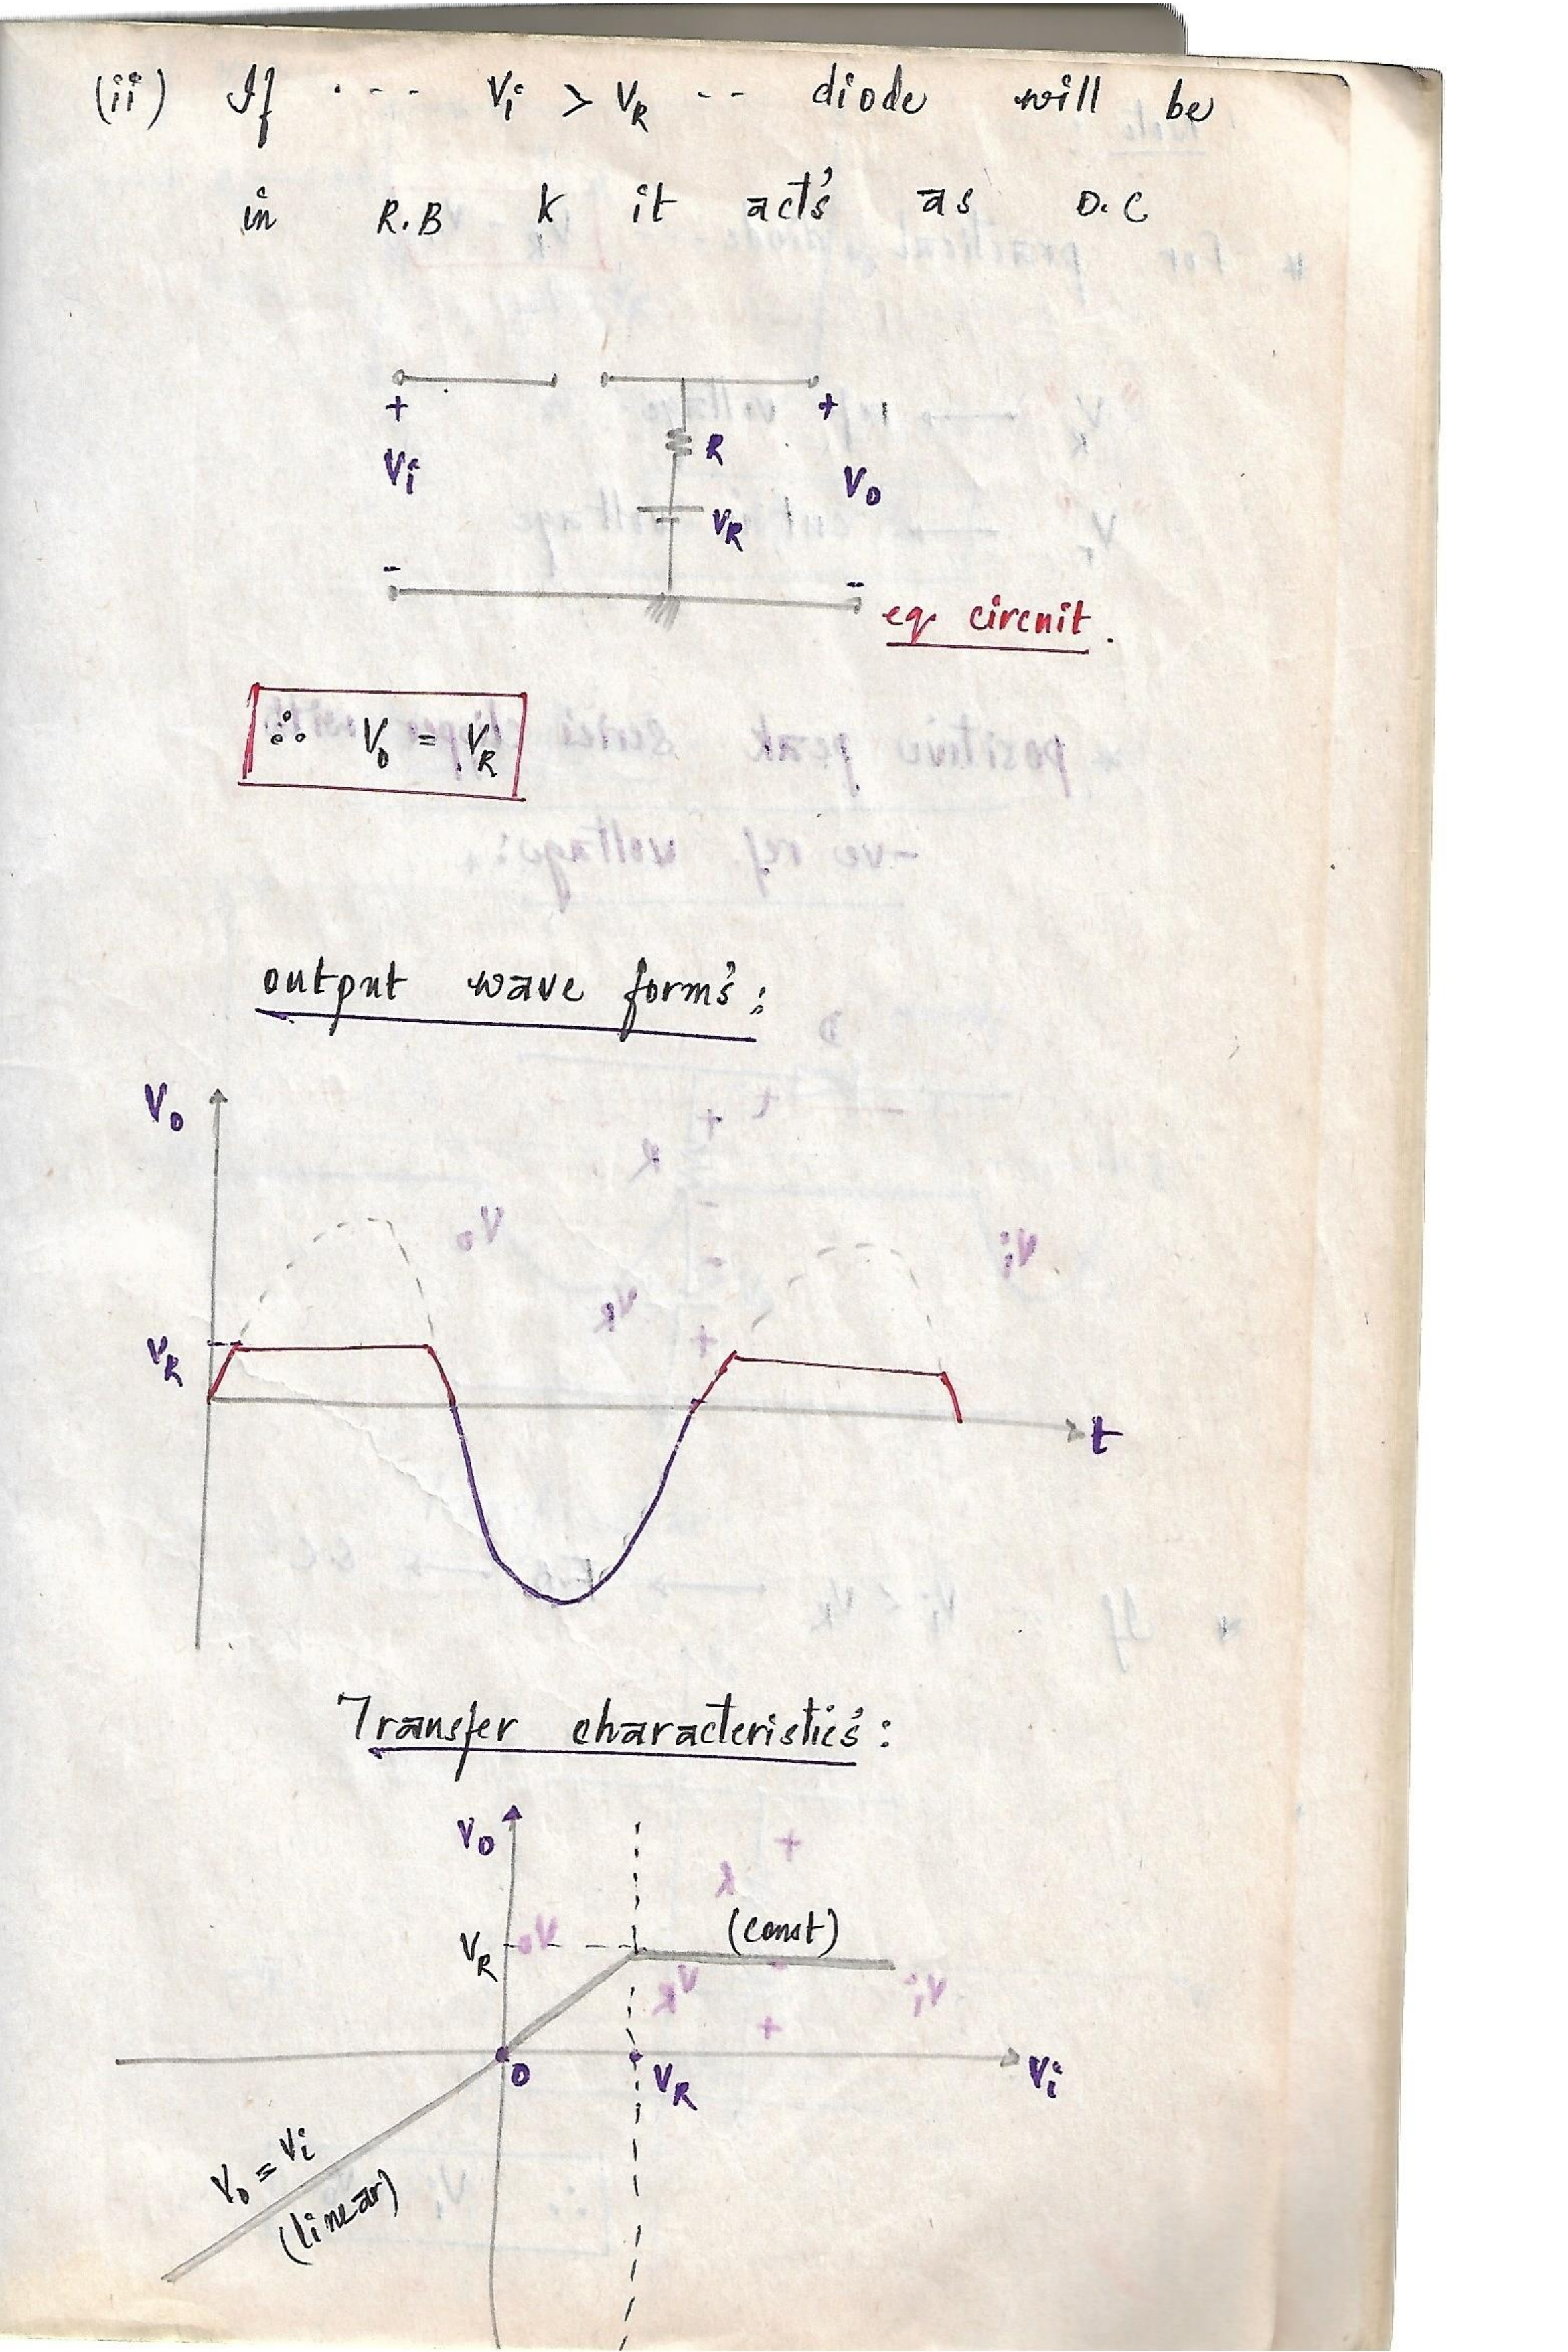 (ii) If ---- Vi > VR -- diode will be
in R.B & it act's as O.C
+ +
Vi R Vo
VR
- -
eq circuit.
∴ Vo = VR
output wave form's:
Vo
VR
t
Transfer characteristic's:
Vo
VR (const)
0 VR Vi
Vo = Vi
(linear)